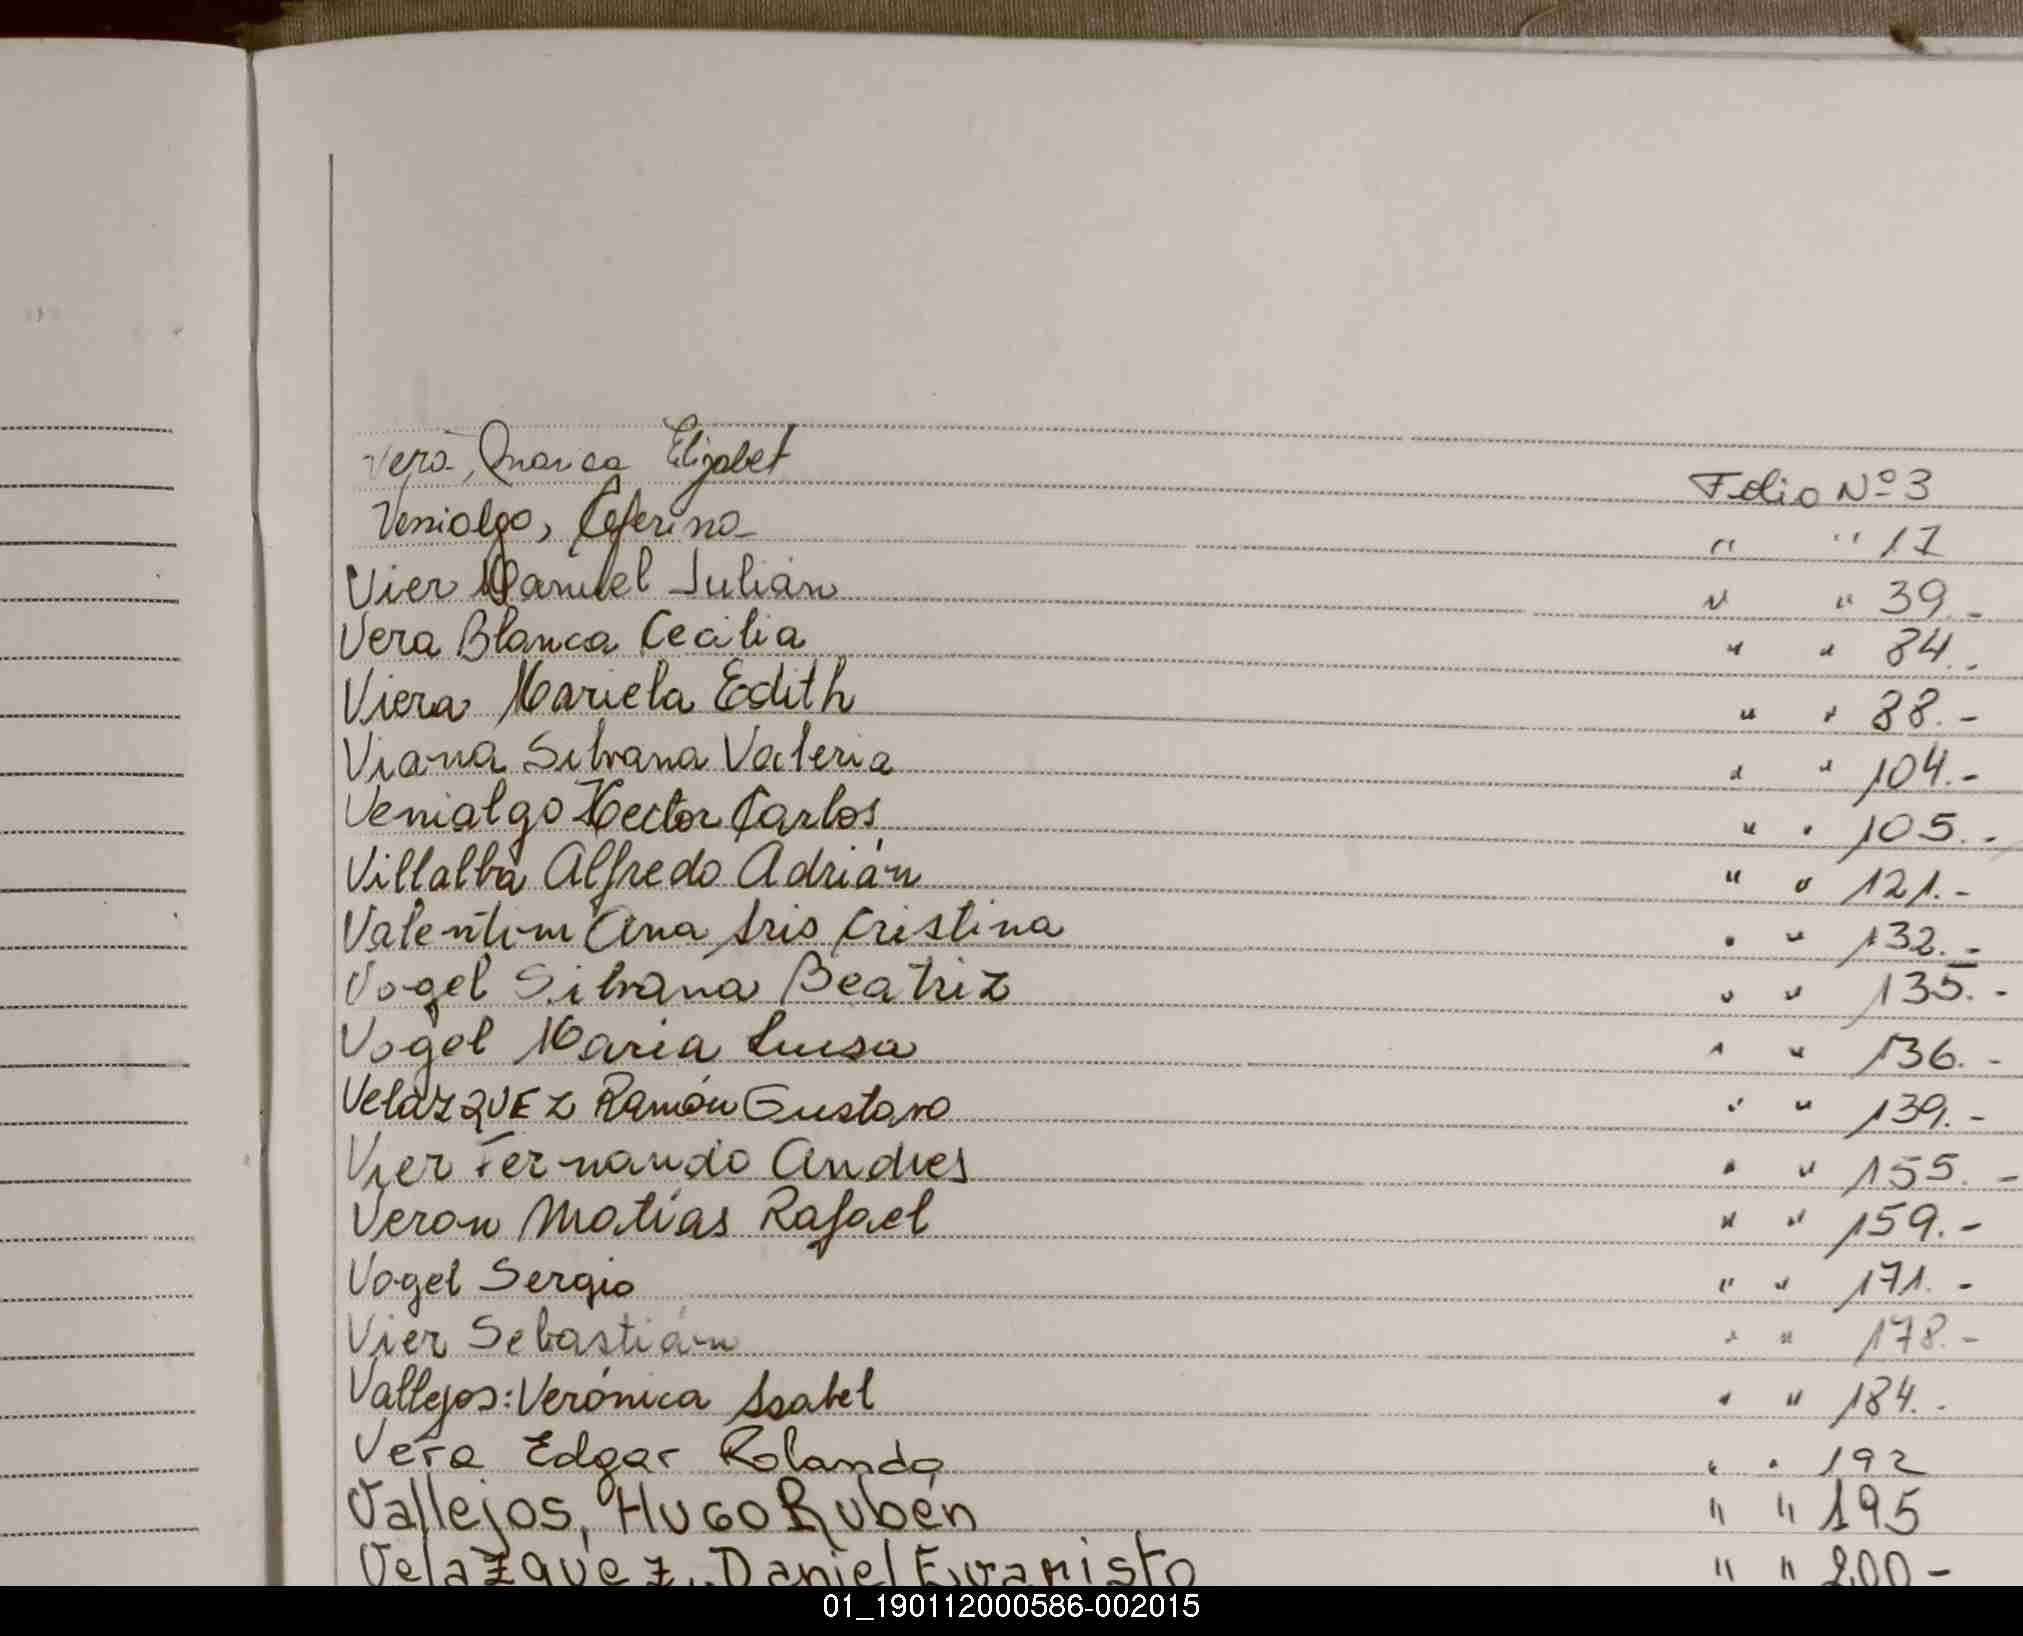 Vera, Marica Elizabet Folio Nº 3
Venialgo, Ceferino " " 17
Vier Manuel Julián " " 39.-
Vera Blanca Cecilia " " 84.-
Viera Mariela Edith " " 88.-
Viana Silvana Valeria " " 104.-
Venialgo Hector Carlos " " 105.-
Villalba Alfredo Adrián " " 121.-
Valentim Ana Iris Cristina " " 132.-
Vogel Silvana Beatriz " " 135.-
Vogel Maria Luisa " " 136.-
Velazquez Ramón Gustavo " " 139.-
Vier Fernando Andres " " 155.-
Veron Matías Rafael " " 159.-
Vogel Sergio " " 171.-
Vier Sebastián " " 178.-
Vallejos: Verónica Isabel " " 184.-
Vera Edgar Rolando " " 192
Vallejos, Hugo Rubén " " 195
Velazquez, Daniel Evaristo " " 200-
01_190112000586-002015